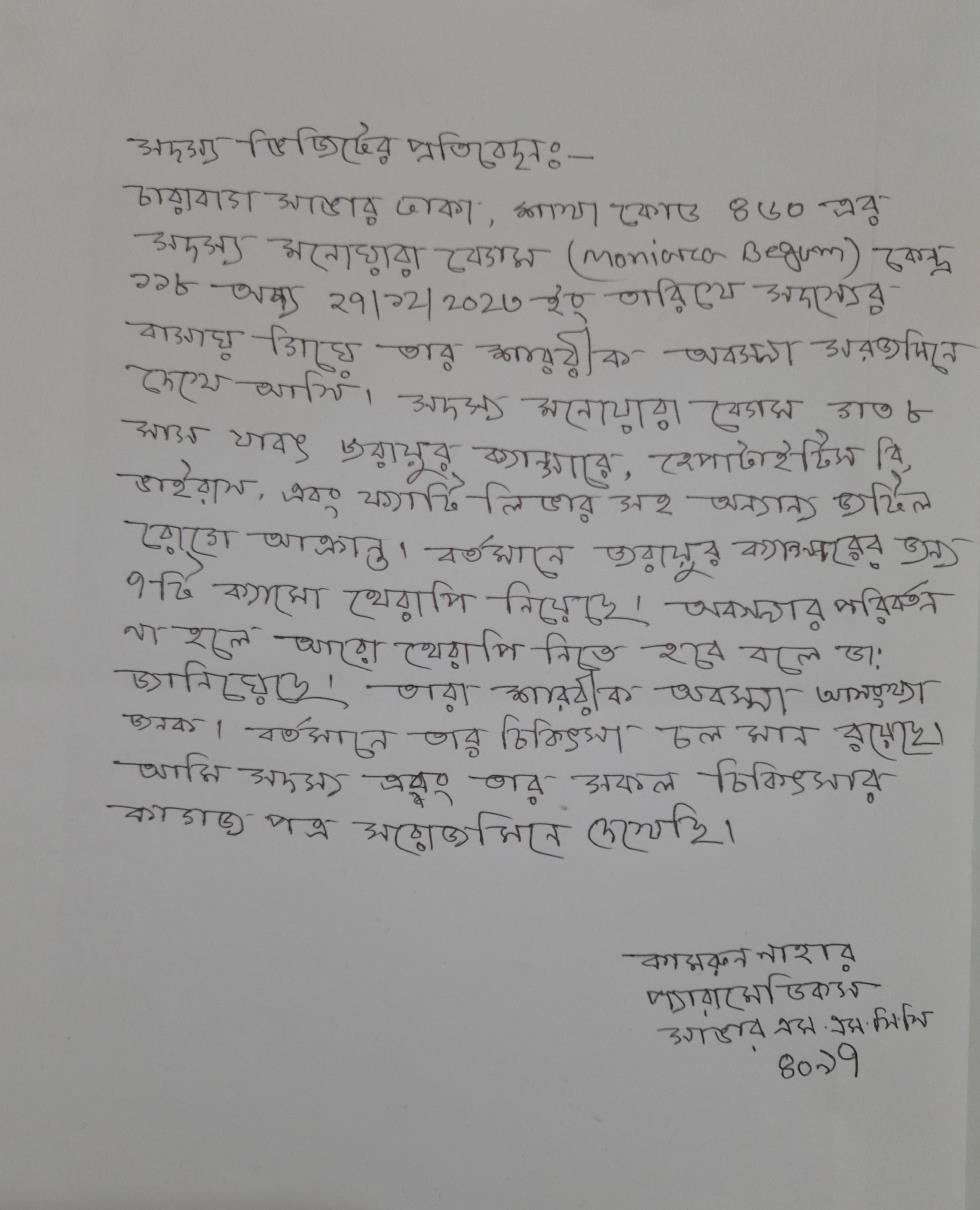 সদস্য ভিজিটের প্রতিবেদন:-
চারাবাগ সাভার ঢাকা, শাখা কোড ৪৬০ এর
সদস্য মনোয়ারা বেগম (Moniara Begum) কেন্দ্র
১১৮ অদ্য ২৭/১২/২০২৩ ইং তারিখে সদস্যের
বাসায় গিয়ে তার শাররীক অবস্থা সরজমিনে
দেখে আসি। সদস্য মনোয়ারা বেগম গত ৮
মাস যাবৎ জরায়ুর ক্যান্সারে, হেপাটাইটিস বি,
ভাইরাস, এবং ফ্যাটি লিভার সহ অন্যান্য জটিল
রোগে আক্রান্ত। বর্তমানে জরায়ুর ক্যান্সারের জন্য
৭টি ক্যামো থেরাপি নিয়েছে। অবস্থার পরিবর্তন
না হলে আরো থেরাপি নিতে হবে বলে ডা:
জানিয়েছে। তারা শাররীক অবস্থা আসংখ্যা
জনক। বর্তমানে তার চিকিৎসা চল মান রয়েছে।
আমি সদস্য এবং তার সকল চিকিৎসার
কাগজ পত্র সরোজমিনে দেখেছি।
কামরুন নাহার
প্যারামেডিকস
সাভার এস.এস.সি.সি
৪০১৭